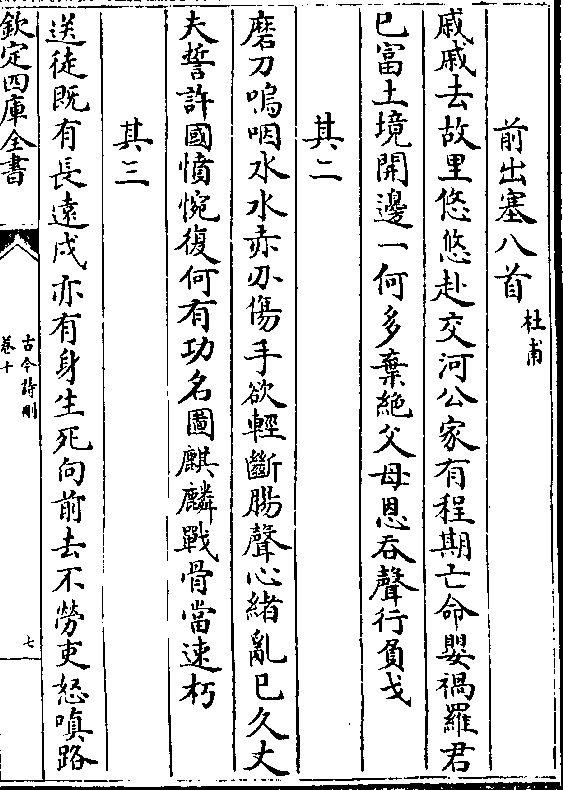 前出塞八首
杜甫
戚戚去故里悠悠赴交河公家有程期亡命嬰禍羅君
已富土境開邊一何多棄絶父母恩吞聲行負戈
其二
磨刀嗚咽水水赤刃傷手欲輕斷腸聲心緒亂已久丈
夫誓許國憤惋復何有功名圖麒麟戰骨當速朽
其三
送徒既有長遠戍亦有身生死向前去不勞吏怒嗔路
欽定四庫全書
古今詩刪
卷十
七